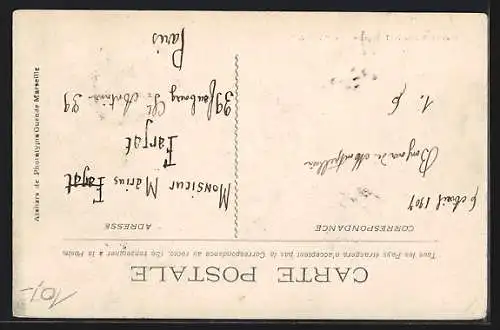 CARTE POSTALE
Tous les Pays étrangers n'acceptent pas la Correspondance au recto. (Se renseigner à la Poste.
CORRESPONDANCE
ADRESSE
6 Avril 1907
Bonjour de Montpellier
1. 6
Monsieur Marius Fargat
Farjat
39 faubourg St Antoine 39
Paris
Ateliers de Phototypie Guende Marseille
10,-